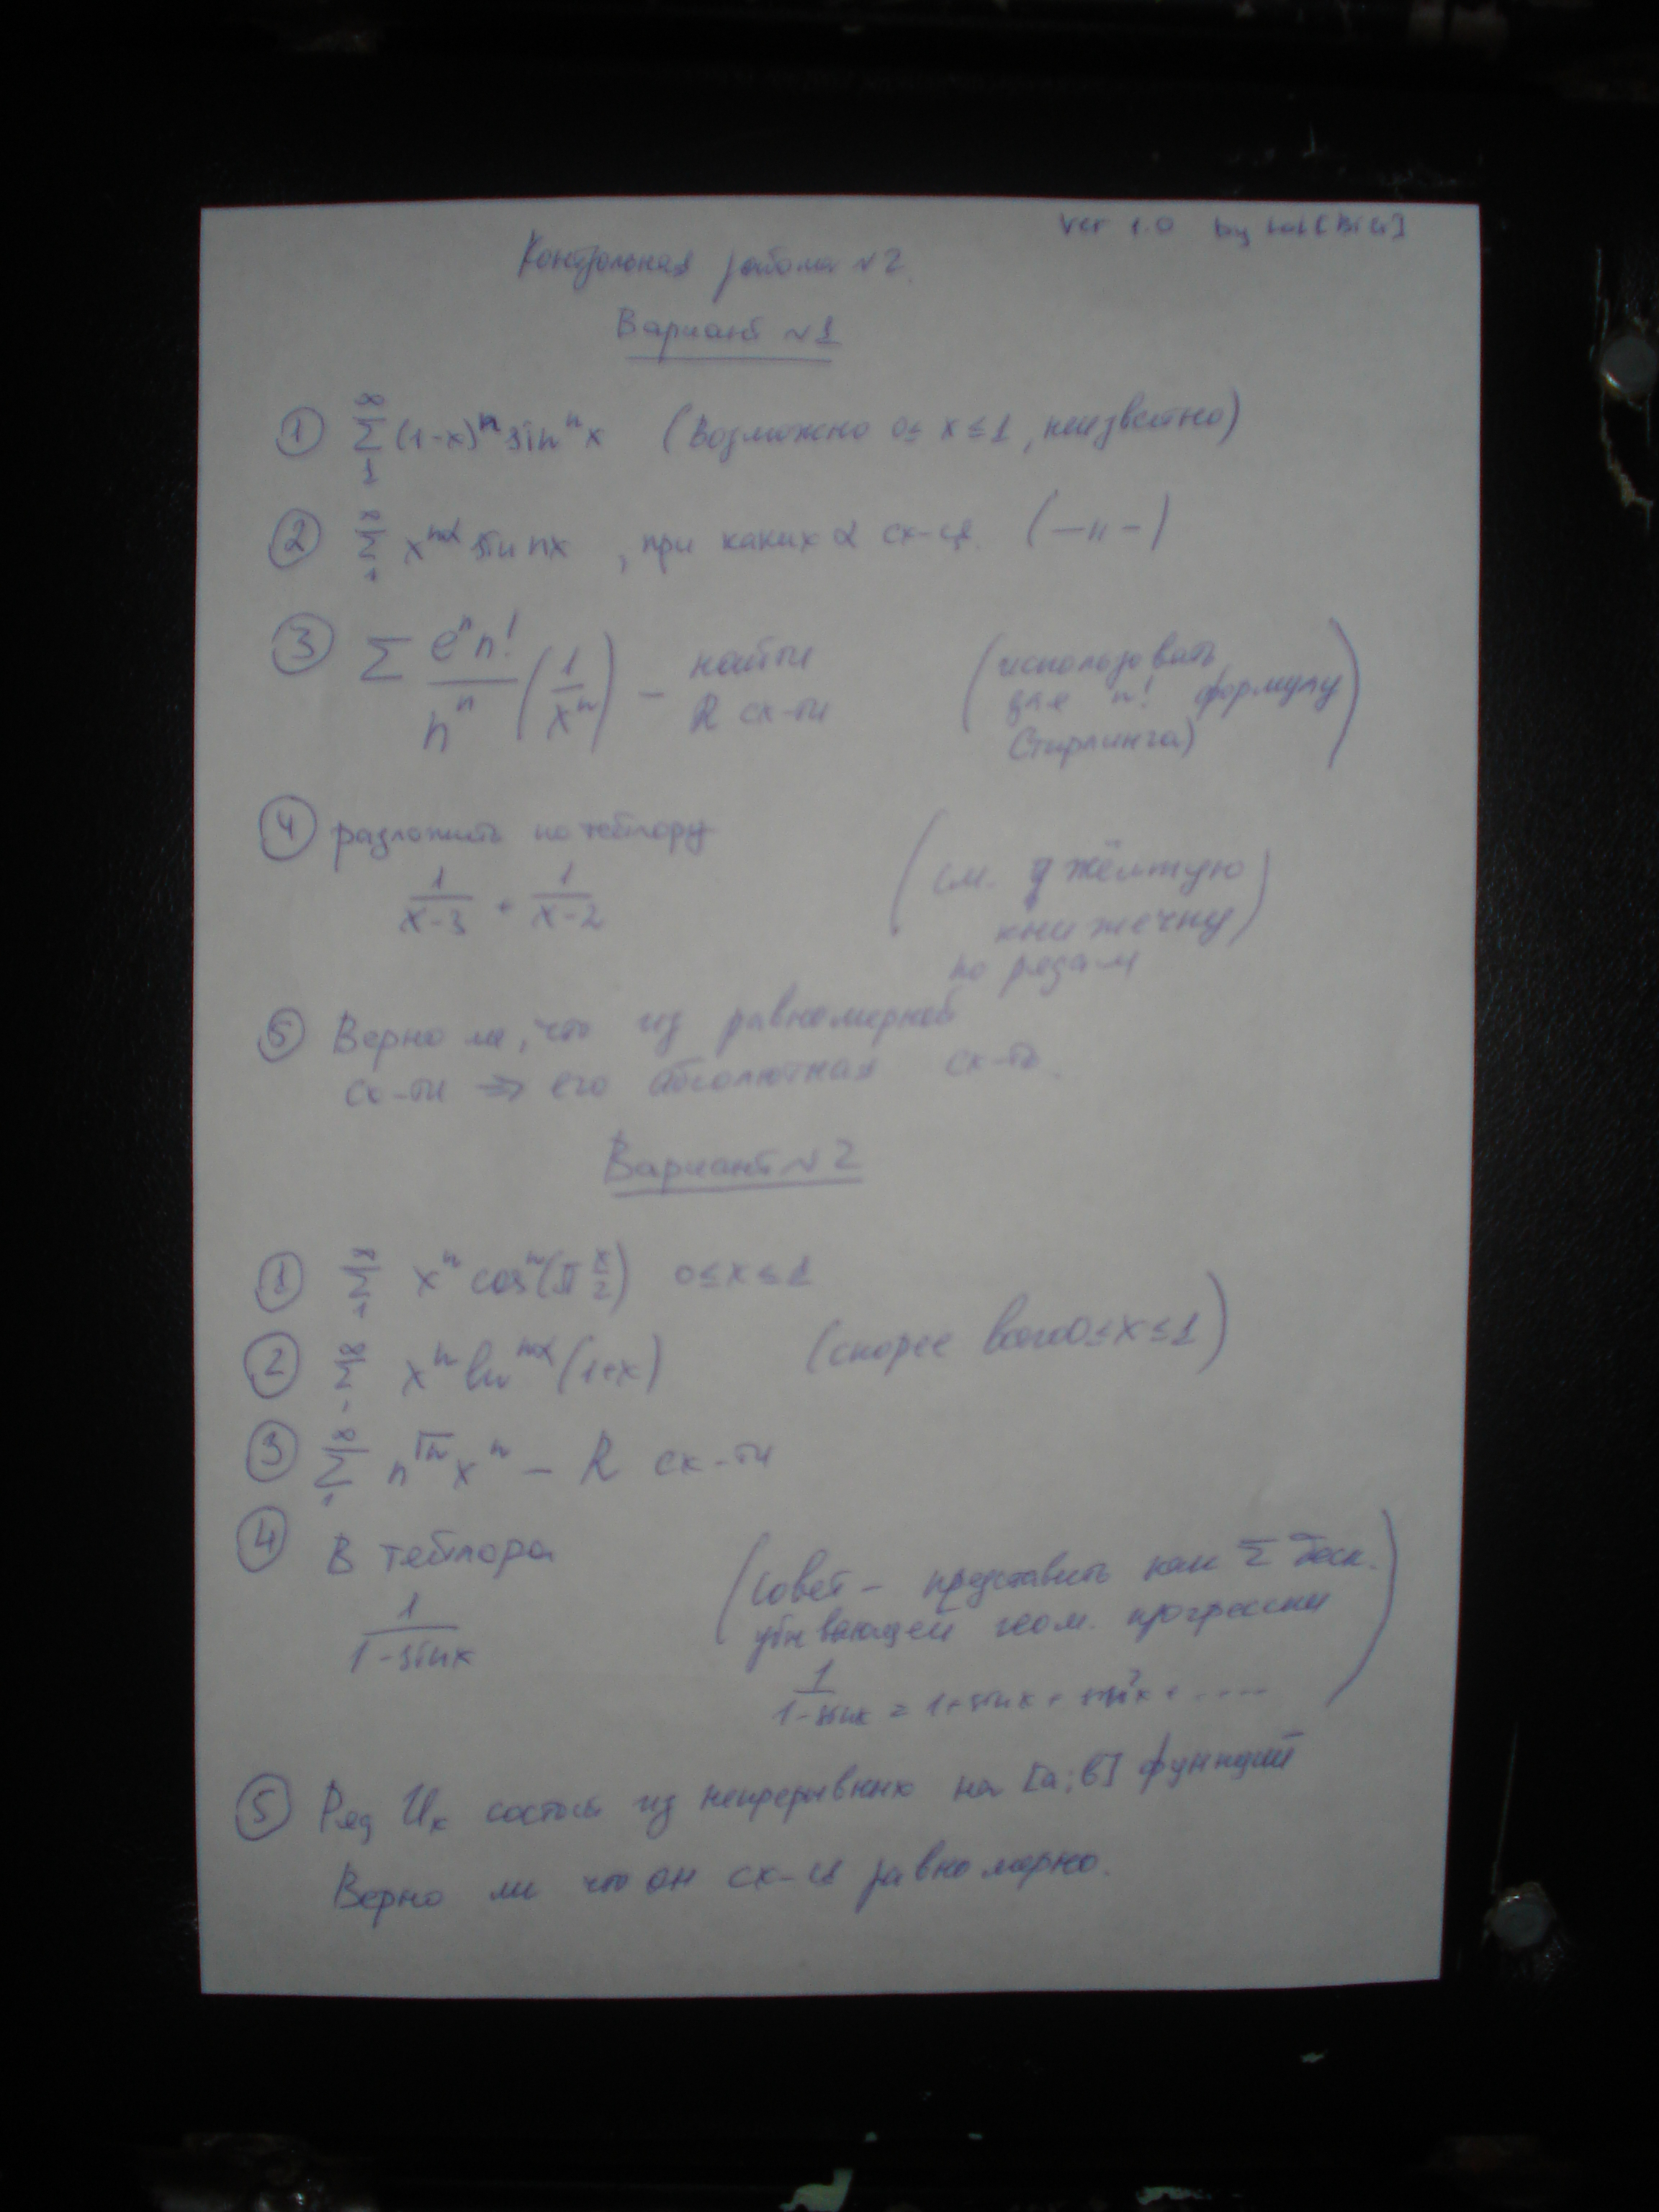 Ver 1.0 by
Контрольная работа №2.
Вариант №1
① ∞ Σ 1 (1-x)^n sin^n x (Возможно 0 ≤ x ≤ 1, неизвестно)
② ∞ Σ 1 x^{nα} sin nx , при каких α сх-ся. (—"—)
③ Σ e^n n! / n^n (1/x^n) — найти R сх-ти (использовать
для n! формулу
Стирлинга)
④ разложить по тейлору (см. жёлтую
1/(x-3) + 1/(x-2) книжечку)
по рядам
⑤ Верно ли, что из равномерной
сх-ти ⇒ его абсолютная сх-ть.
Вариант №2
① ∞ Σ 1 x^n cos^n(π x/2) 0 ≤ x ≤ 1
② ∞ Σ 1 x^n ln^{nα}(1+x) (скорее всего 0 ≤ x ≤ 1)
③ ∞ Σ 1 n^{√n} x^n — R сх-ти
④ В тейлора (совет — представить как Σ беск.
1/(1-sinx) убывающей геом. прогрессии
1/(1-sinx) = 1+sinx + sin²x + .....)
⑤ Ряд U_k состоит из непрерывных на [a;b] функций
Верно ли что он сх-ся равномерно.